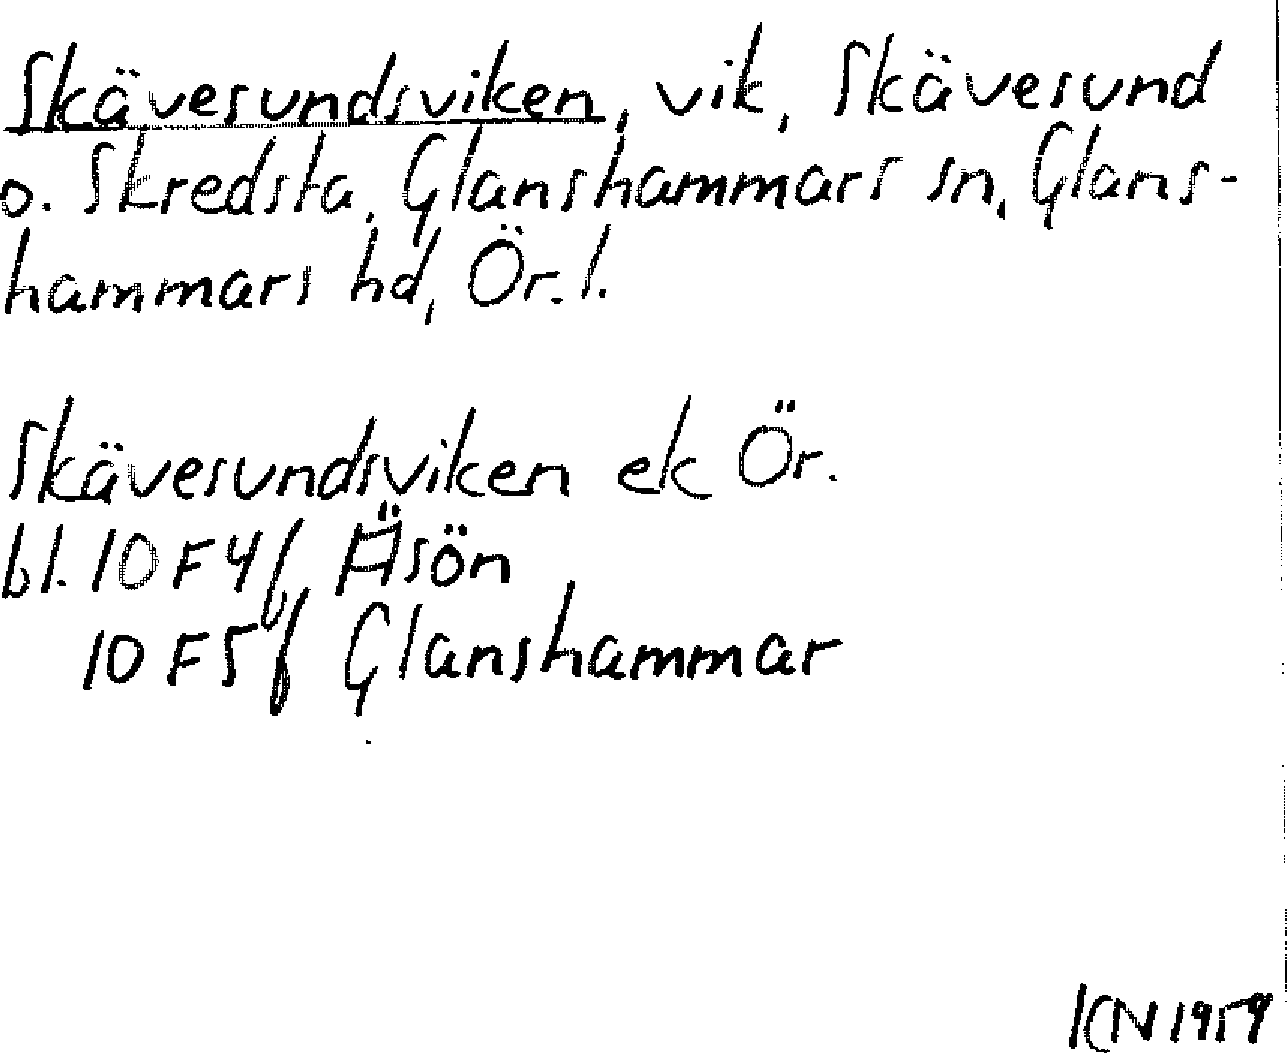 Skävesundsviken, vik, Skävesund
o. Skredsta, Glanshammars sn, Glans-
hammars hd, Ör. l.
Skävesundsviken ek Ör.
bl. 10 F 4 f Äsön
10 F 5 f Glanshammar
KN 1959